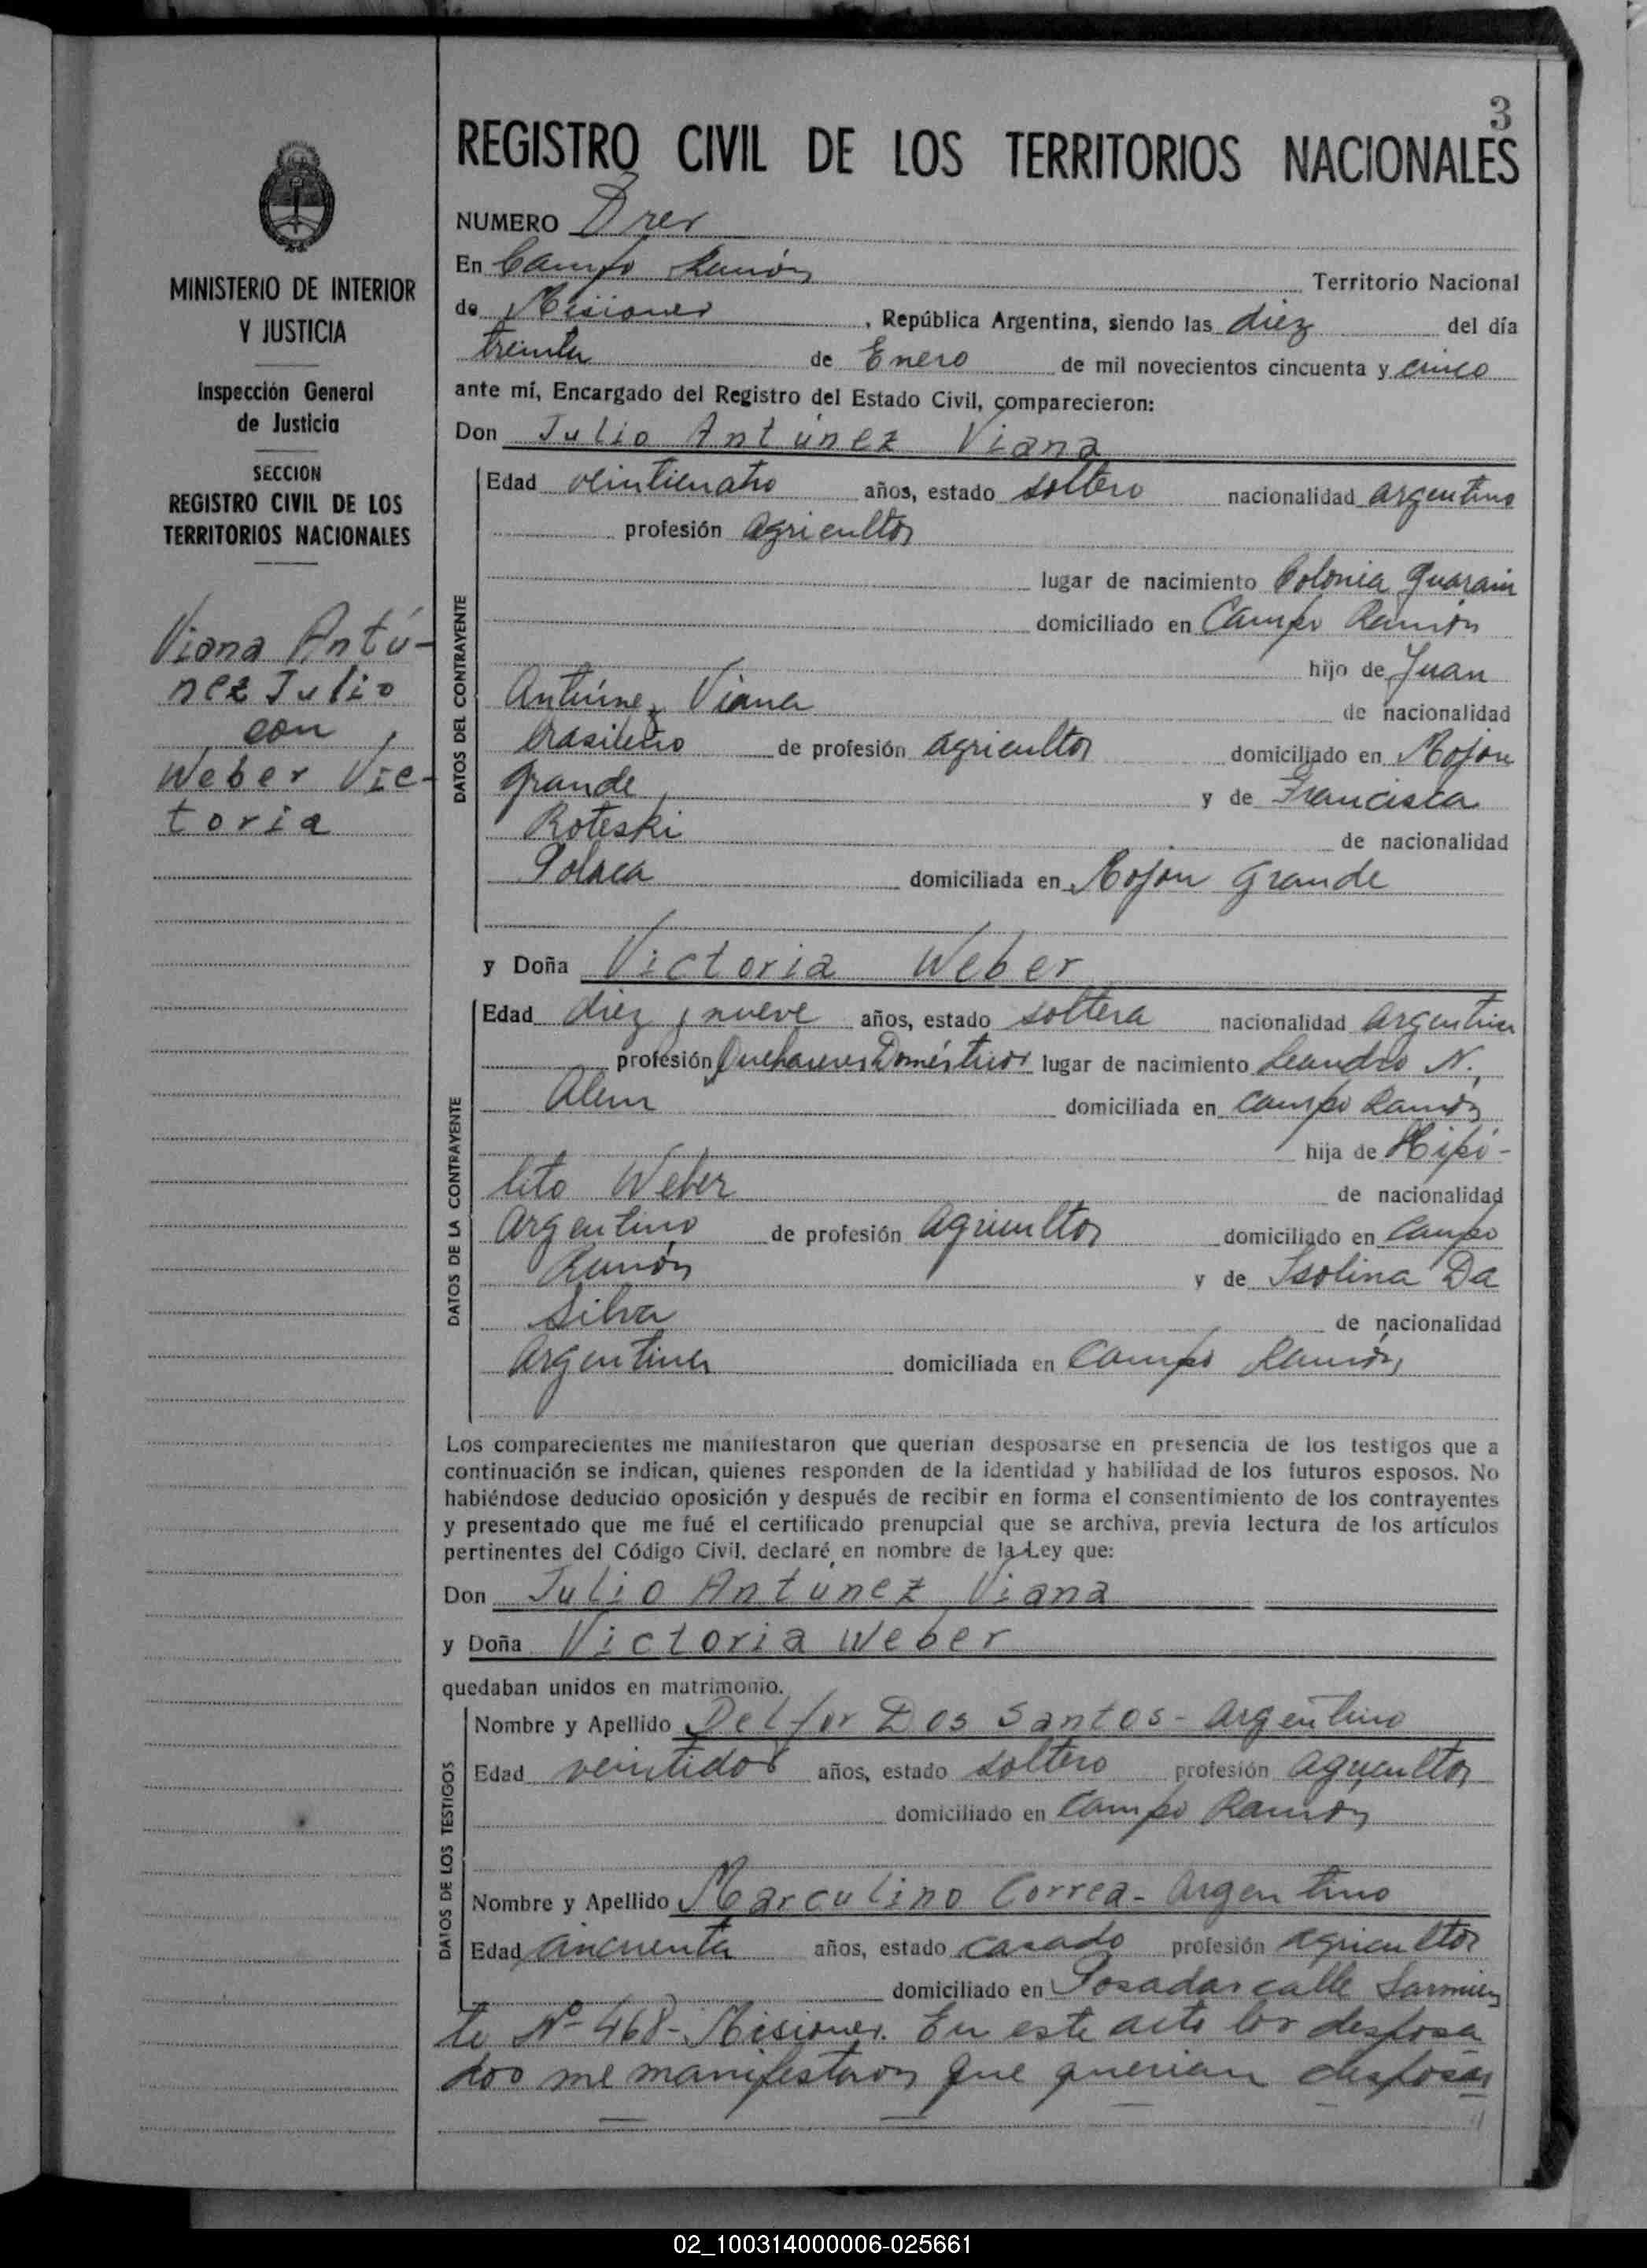 3
REGISTRO CIVIL DE LOS TERRITORIOS NACIONALES
MINISTERIO DE INTERIOR
Y JUSTICIA
Inspección General
de Justicia
SECCION
REGISTRO CIVIL DE LOS
TERRITORIOS NACIONALES
Viana Antú-
nez Julio
con
Weber Vic-
toria
NUMERO Tres
En Campo Ramón Territorio Nacional
de Misiones, República Argentina, siendo las diez del día
treinta de Enero de mil novecientos cincuenta y cinco
ante mí, Encargado del Registro del Estado Civil, comparecieron:
Don Julio Antúnez Viana
DATOS DEL CONTRAYENTE
Edad veinticuatro años, estado soltero nacionalidad argentino
profesión agricultor
lugar de nacimiento Colonia Guaraní
domiciliado en Campo Ramón
hijo de Juan
Antúnez Viana de nacionalidad
brasileño de profesión agricultor domiciliado en Mojón
grande y de Francisca
Roteski de nacionalidad
Polaca domiciliada en Mojón grande
y Doña Victoria Weber
DATOS DE LA CONTRAYENTE
Edad diez y nueve años, estado soltera nacionalidad argentina
profesión Quehaceres Domésticos lugar de nacimiento Leandro N.
Alem domiciliada en Campo Ramón
hija de Hipó-
lito Weber de nacionalidad
argentino de profesión agricultor domiciliado en Campo
Ramón y de Isolina Da
Silva de nacionalidad
argentina domiciliada en Campo Ramón
Los comparecientes me manifestaron que querían desposarse en presencia de los testigos que a
continuación se indican, quienes responden de la identidad y habilidad de los futuros esposos. No
habiéndose deducido oposición y después de recibir en forma el consentimiento de los contrayentes
y presentado que me fué el certificado prenupcial que se archiva, previa lectura de los artículos
pertinentes del Código Civil, declaré en nombre de la Ley que:
Don Julio Antúnez Viana
y Doña Victoria Weber
quedaban unidos en matrimonio.
DATOS DE LOS TESTIGOS
Nombre y Apellido Delfor Dos Santos - argentino
Edad veintidos años, estado soltero profesión agricultor
domiciliado en Campo Ramón
Nombre y Apellido Marculino Correa - argentino
Edad cincuenta años, estado casado profesión agricultor
domiciliado en Posadas calle Sarmien
to Nº 468 - Misiones. En este acto los desposa
dos me manifestaron que querian desposar
02_100314000006-025661